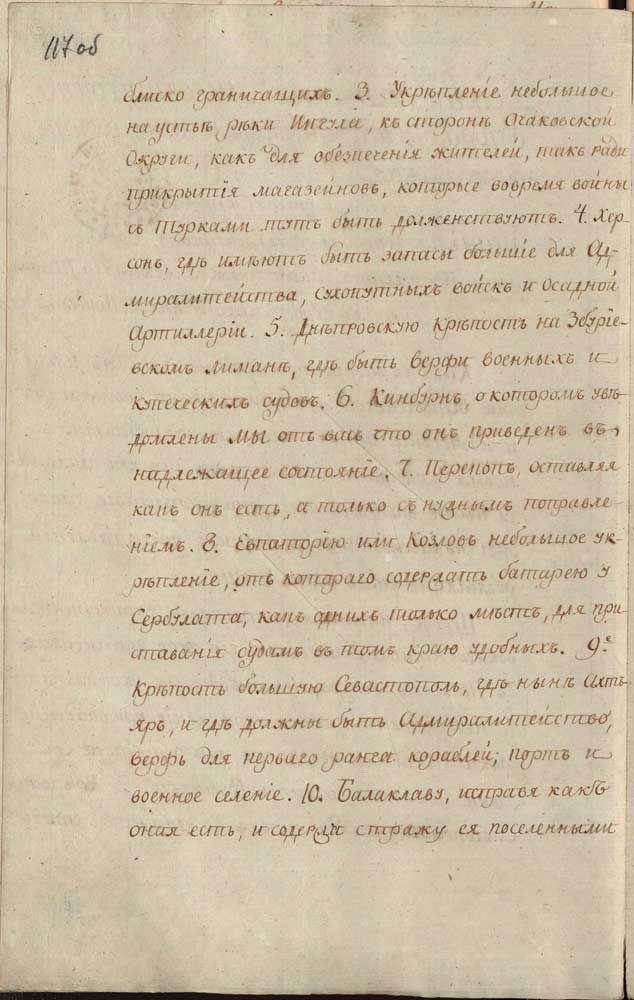 117 об
близко граничащихъ. 3. Укрѣпленіе небольшое
на устьѣ рѣки Ингула, къ сторонѣ Очаковской
Округи, какъ для обезпеченія жителей, такъ ради
прикрытія магазейновъ, которые вовремя войны
съ Турками тутъ быть долженствуютъ. 4. Хер-
сонъ, гдѣ имѣютъ быть запасы большіе для Ад-
миралитейства, сухопутныхъ войскъ и осадной
Артиллеріи. 5. Днѣпровскую крѣпость на Збуріе-
вскомъ Лиманѣ, гдѣ быть верфи военныхъ и
купеческихъ судовъ. 6. Кинбурнъ, о которомъ увѣ-
домлены мы отъ васъ что онъ приведенъ въ
надлежащее состояніе. 7. Перекопъ, оставляя
какъ онъ есть, а только съ нужнымъ поправле-
ніемъ. 8. Евпаторію или Козловъ небольшое ук-
рѣпленіе, отъ котораго содержать батарею у
Сербулата, какъ одних только мѣстъ, для при-
ставанія судамъ въ томъ краю удобныхъ. 9е
Крѣпость большую Севастополь, гдѣ нынѣ Ахть-
яръ, и гдѣ должны быть Адмиралитейство,
верфь для перваго ранга кораблей, портъ и
военное селеніе. 10. Балаклаву, исправя какъ
оная есть, и содержа стражу ея поселенными